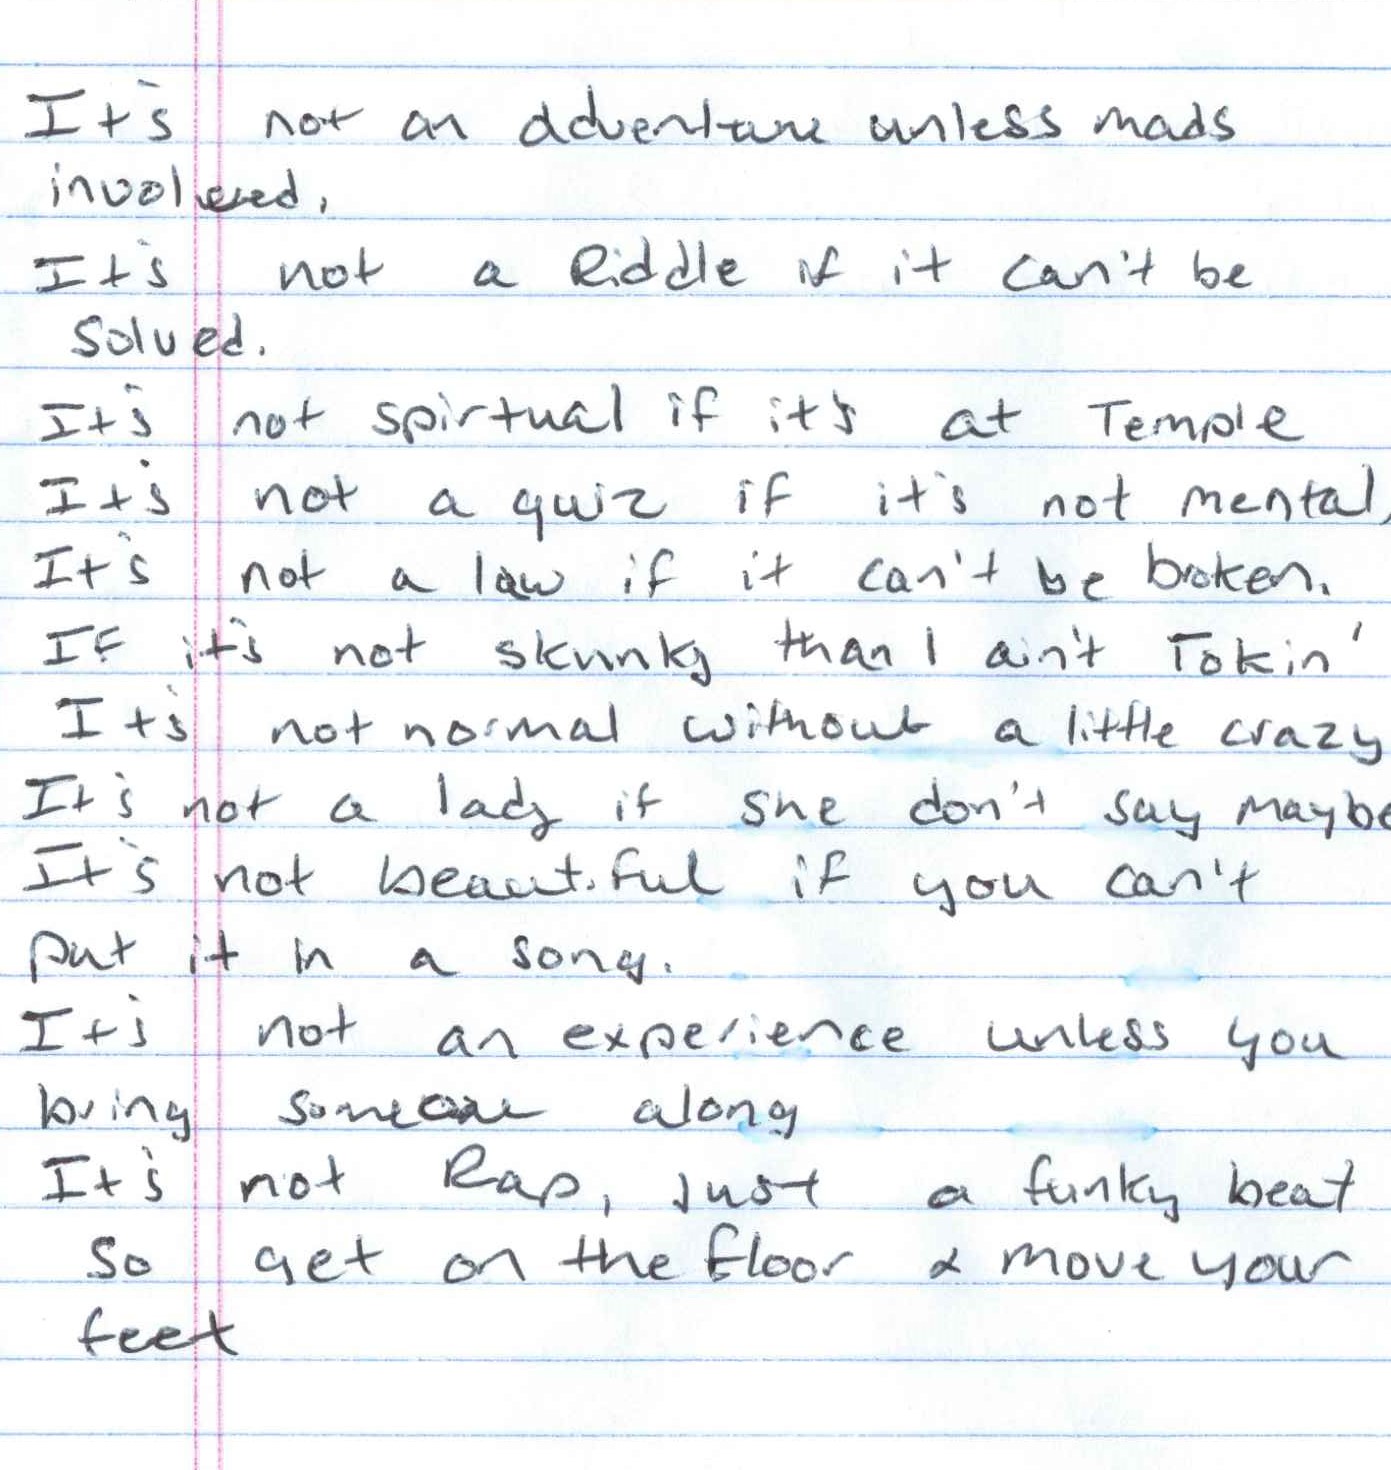 It's not an adventure unless mads
involved.
It's not a Riddle if it can't be
Solved.
It's not spirtual if it's at Temple
It's not a quiz if it's not mental,
It's not a law if it can't be broken.
If it's not skunky than I ain't Tokin'
It's not normal without a little crazy
It's not a lady if she don't say Maybe
It's not beautiful if you can't
put it in a song.
It's not an experience unless you
bring someone along
It's not Rap, Just a funky beat
So get on the floor & move your
feet